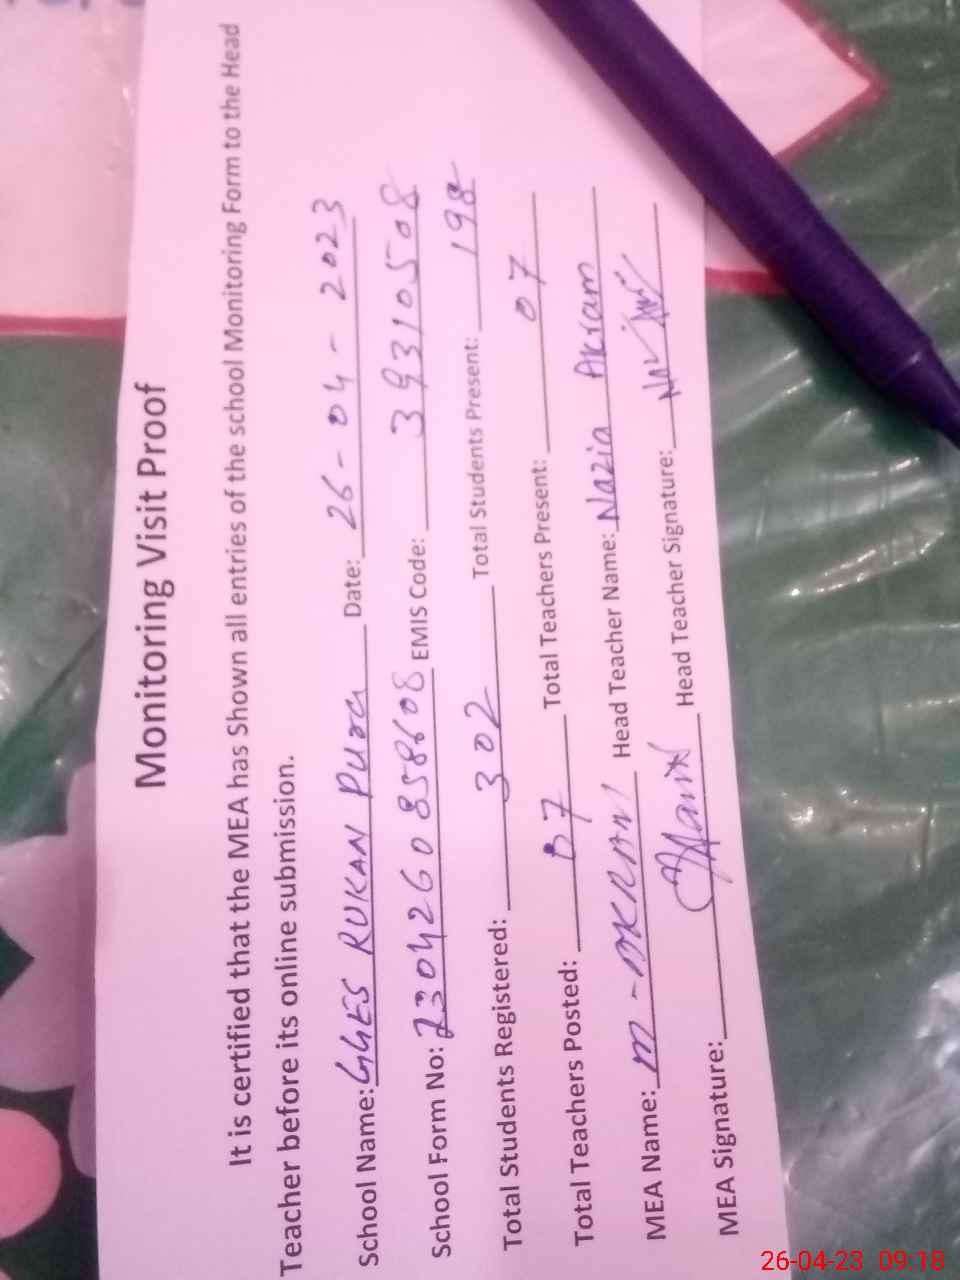 Monitoring Visit Proof
It is certified that the MEA has Shown all entries of the school Monitoring Form to the Head
Teacher before its online submission.
School Name: GGES RUKAN PURA Date: 26-04-2023
School Form No: 230426085 8608 EMIS Code: 39310508
Total Students Registered: 302 Total Students Present: 198
Total Teachers Posted: 07 Total Teachers Present: 07
MEA Name: M-AKRAM Head Teacher Name: Nazia Akram
MEA Signature: Head Teacher Signature:
26-04-23 09:18